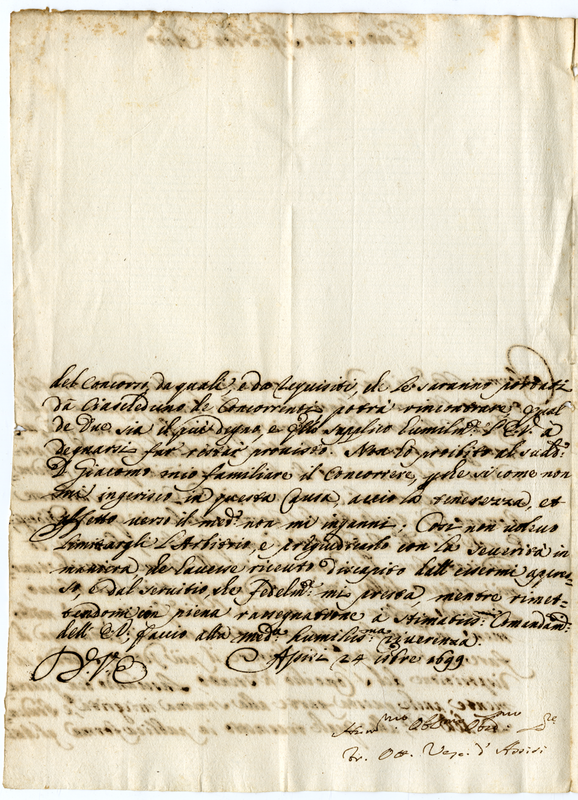 del Concorso, da quale, e da Requisiti, che le saranno portati
da Ciascheduno de Concorrenti potrà rincontrare, qual
de Due sia il più degno, e supplico humilm.te l'E.V. à
Degnarsi far restar proviso. Non hò proibito al sud.o
D. Giacomo mio familiare il Concorrere, perche si come non
mi ingerisco in questa Causa, acciò la tenerezza, et
affetto verso il med.o non mi inganni; Così non volevo
limitargli l'Arbitrio, e pregiudicarlo con la severità in
maniera che havesse ricevuto discapito dall'essermi
e dal servitio, che fedelm.te mi presta, mentre rimet-
tendomi con piena rassegnatione à stimatiss.mi Comandam.ti
dell'E.V. faccio alla med.ma humiliss.ma riverenza.
D. V. E. Assisi 24 8bre 1699
Hum.mo
fr. Ott. Vesc. d'Assisi